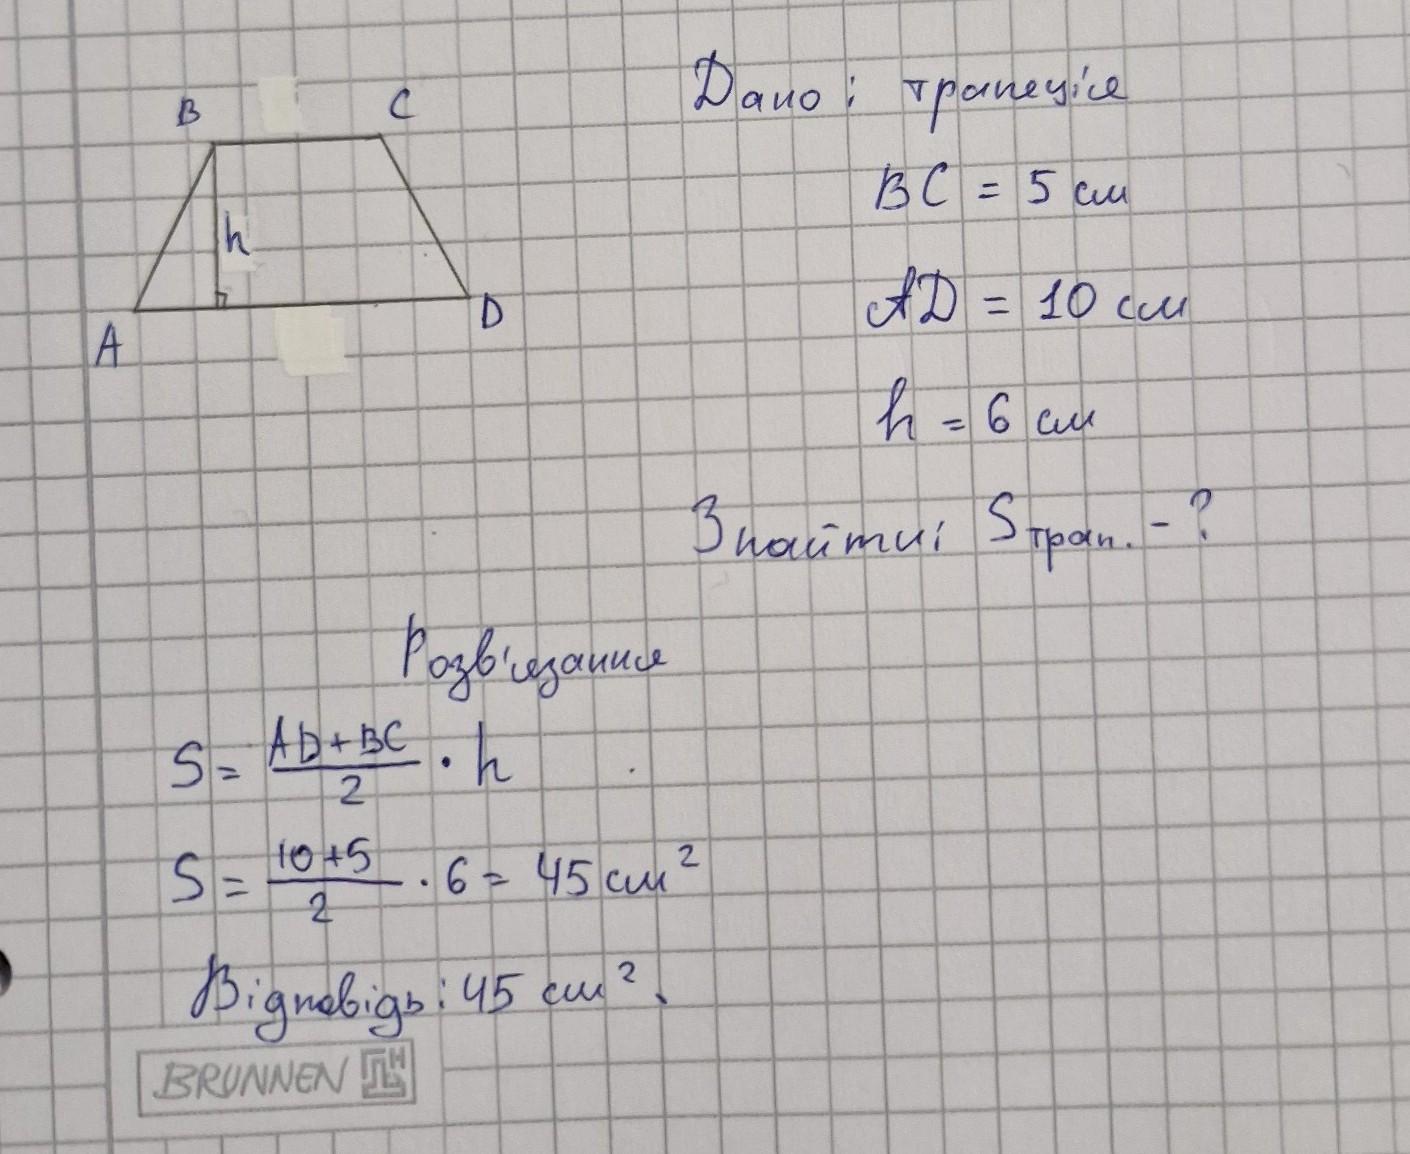 B C
h
A D
Дано: трапеція
BC = 5 см
AD = 10 см
h = 6 см
Знайти: Sтрап. - ?
Розв'язання
S = \frac{AD+BC}{2} · h
S = \frac{10+5}{2} · 6 = 45 см²
Відповідь: 45 см².
BRUNNEN